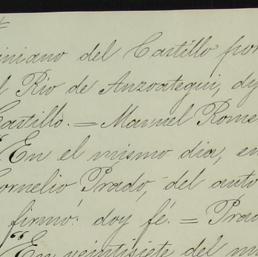 iniano del Castillo por
l Rio de Anzoategui, dy
Castillo. = Manuel Rome
En el mismo dia, en
Cornelio Prado, del auto
firmó: doy fé. = Prad
"En veintisiete del m